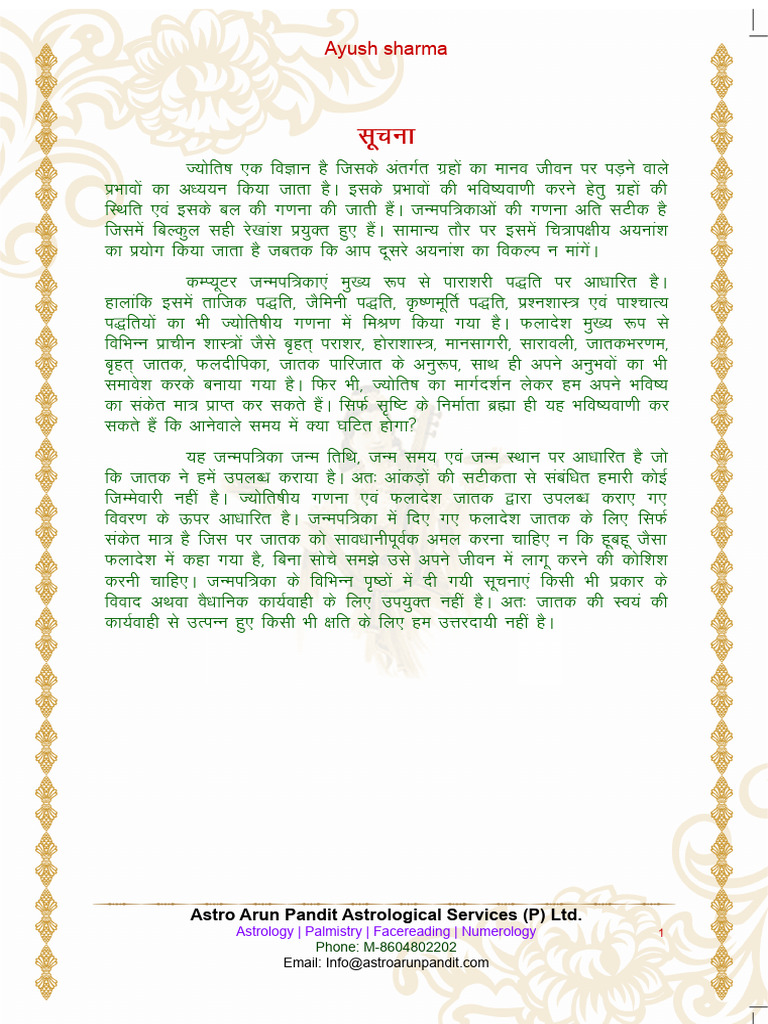 Ayush sharma
सूचना
ज्योतिष एक विज्ञान है जिसके अंतर्गत ग्रहों का मानव जीवन पर पड़ने वाले
प्रभावों का अध्ययन किया जाता है। इसके प्रभावों की भविष्यवाणी करने हेतु ग्रहों की
स्थिति एवं इसके बल की गणना की जाती हैं। जन्मपत्रिकाओं की गणना अति सटीक है
जिसमें बिल्कुल सही रेखांश प्रयुक्त हुए हैं। सामान्य तौर पर इसमें चित्रापक्षीय अयनांश
का प्रयोग किया जाता है जबतक कि आप दूसरे अयनांश का विकल्प न मांगें।
कम्प्यूटर जन्मपत्रिकाएं मुख्य रूप से पाराशरी पद्धति पर आधारित है।
हालांकि इसमें ताजिक पद्धति, जैमिनी पद्धति, कृष्णमूर्ति पद्धति, प्रश्नशास्त्र एवं पाश्चात्य
पद्धतियों का भी ज्योतिषीय गणना में मिश्रण किया गया है। फलादेश मुख्य रूप से
विभिन्न प्राचीन शास्त्रों जैसे बृहत् पराशर, होराशास्त्र, मानसागरी, सारावली, जातकभरणम,
बृहत् जातक, फलदीपिका, जातक पारिजात के अनुरूप, साथ ही अपने अनुभवों का भी
समावेश करके बनाया गया है। फिर भी, ज्योतिष का मार्गदर्शन लेकर हम अपने भविष्य
का संकेत मात्र प्राप्त कर सकते हैं। सिर्फ सृष्टि के निर्माता ब्रह्मा ही यह भविष्यवाणी कर
सकते हैं कि आनेवाले समय में क्या घटित होगा?
यह जन्मपत्रिका जन्म तिथि, जन्म समय एवं जन्म स्थान पर आधारित है जो
कि जातक ने हमें उपलब्ध कराया है। अतः आंकड़ों की सटीकता से संबंधित हमारी कोई
जिम्मेवारी नहीं है। ज्योतिषीय गणना एवं फलादेश जातक द्वारा उपलब्ध कराए गए
विवरण के ऊपर आधारित है। जन्मपत्रिका में दिए गए फलादेश जातक के लिए सिर्फ
संकेत मात्र है जिस पर जातक को सावधानीपूर्वक अमल करना चाहिए न कि हूबहू जैसा
फलादेश में कहा गया है, बिना सोचे समझे उसे अपने जीवन में लागू करने की कोशिश
करनी चाहिए। जन्मपत्रिका के विभिन्न पृष्ठों में दी गयी सूचनाएं किसी भी प्रकार के
विवाद अथवा वैधानिक कार्यवाही के लिए उपयुक्त नहीं है। अतः जातक की स्वयं की
कार्यवाही से उत्पन्न हुए किसी भी क्षति के लिए हम उत्तरदायी नहीं है।
Astro Arun Pandit Astrological Services (P) Ltd.
Astrology | Palmistry | Facereading | Numerology
1
Phone: M-8604802202
Email: Info@astroarunpandit.com